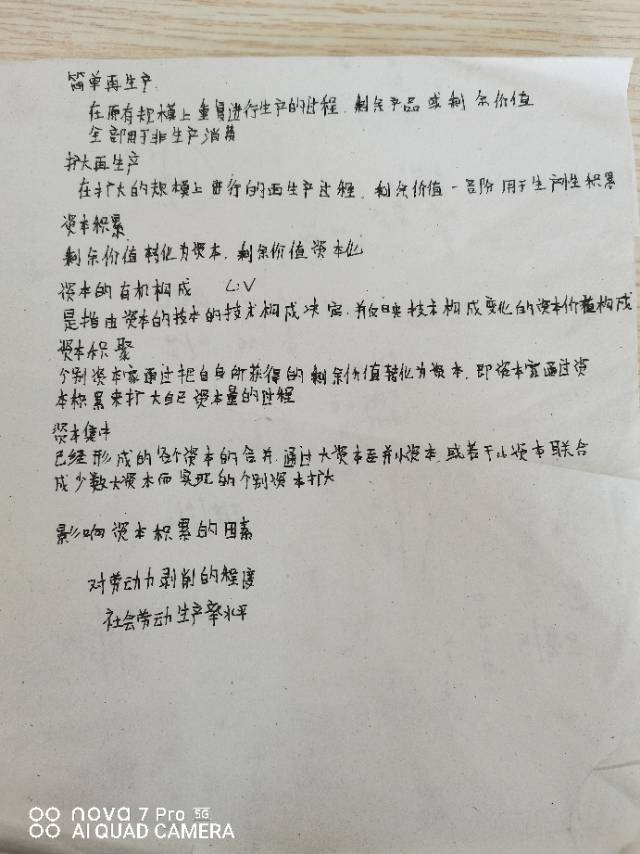 简单再生产
在原有规模上重复进行生产的过程.剩余产品或剩余价值
全部用于非生产消费
扩大再生产
在扩大的规模上进行的再生产过程.剩余价值一部分用于生产性积累
资本积累
剩余价值转化为资本.剩余价值资本化
资本的有机构成 C:V
是指由资本的技本的技术构成决定.并反映技术构成变化的资本价值构成
资本积聚
个别资本家通过把自身所获得的剩余价值转化为资本.即资本家通过资
本积累来扩大自己资本量的过程
资本集中
已经形成的各个资本的合并.通过大资本吞并小资本.或若干小资本联合
成少数大资本而实现的个别资本扩大
影响资本积累的因素
对劳动力剥削的程度
社会劳动生产率水平
nova 7 Pro 5G
AI QUAD CAMERA